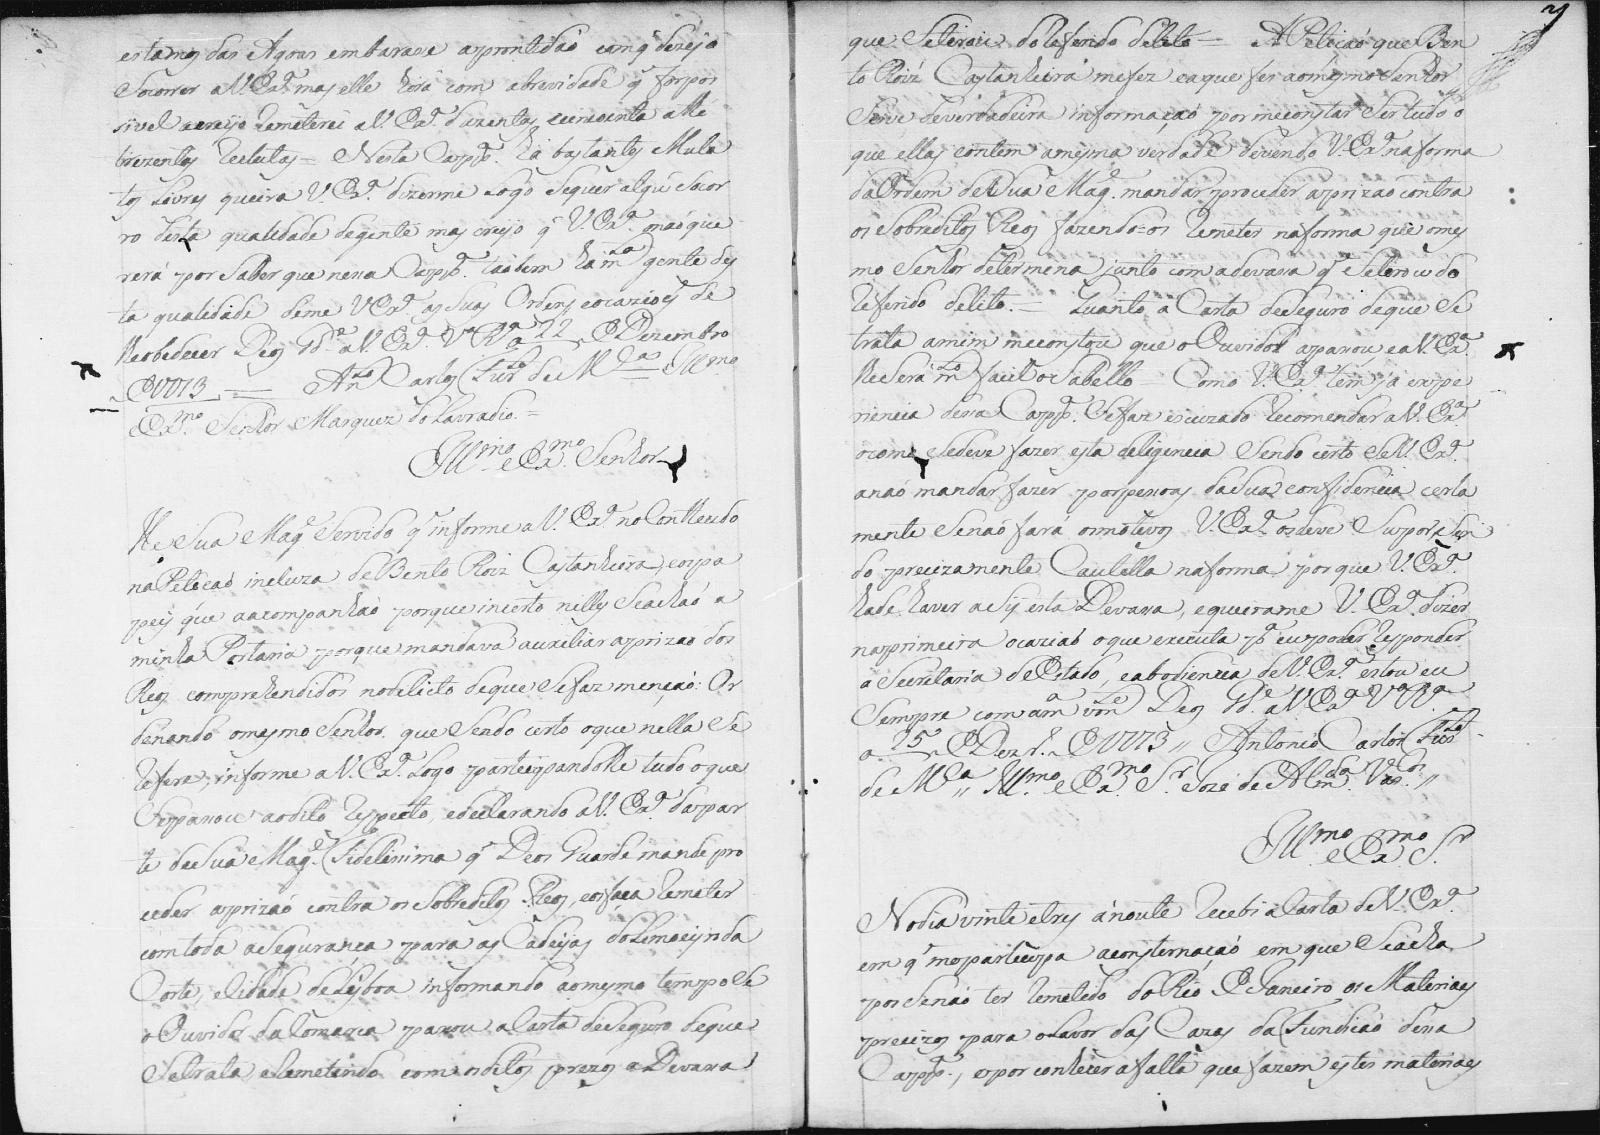 estamos das Agoas embarase a promtidaõ com q̃ dezejo
Socorrer a V. Exª. mas elle hirá com abrevidade q̃ for pos
sivel e creyo Remeterei a V. Exª. duzentos, e cincoenta athe
trezentos Reclutas = Nesta Cappª. ha bastantes Mula
tos Livres queira V. Exª. dizerme Logo Se quer algũ Socor
ro desta qualidade de gente mas creyo q̃ V. Exª. naõ que
rerá por Saber que nessa Cappª. taõbem ha mᵗᵃ gente des
ta qualidade deme V Exª. as Suas Ordens e ocazioẽs de
lhe obedecer Deos Gᵈᵉ. a V. Exª. Vª Rª a 22 de Dezembro
de 1773 == Anᵗᵒ Carlos Furᵗᵈᵒ de Mᶜᵃ = Illᵐᵒ
Exᵐᵒ. Senhor Marquez do Lavradio. =
Illᵐᵒ e Exᵐᵒ. Senhor
He Sua Magᵉ Servido q̃ informe a V. Exª. no Contheudo
na Petiçaõ incluza de Bento Roiz Castanheira, e os pa
peis que a acompanhaõ porque incerto nelles Se acha a
minha Portaria porque mandava auxiliar a prizaõ dos
Reos comprehendidos no delicto de que Se faz mençaõ: Or
denando o mesmo Senhor que Sendo certo o que nella Se
Refere, informe a V. Exª. Logo participandolhe tudo o que
Se passou ao dito Respeito, e declarando a V. Exª. da par
te de Sua Magᵉ. Fidelissima q̃ Deos Guarde mande pro
ceder a prizaõ contra os Sobreditos Reos, e os faça Remeter
com toda a Segurança para as Cadeyas do Limoeiro da
Corte, e Cidade de Lisboa informando ao mesmo tempo Se
o Ouvidor da Comarca passou a Carta de Seguro de que
Se trata, e Remetendo com os ditos prezos a Devassa
que Se tirou do Referido delito = A Petiçaõ que Ben
to Roiz Castanheira me fez e a que fez ao mesmo Senhor
Serve de verdadeira informaçaõ por me constar Ser tudo o
que ellas contem a mesma verdade devendo V. Exª. na forma
da Ordem de Sua Magᵉ. mandar proceder a prizaõ contra
os Sobreditos Reos fazendo-os Remeter na forma que o mes
mo Senhor determina junto com a devassa q̃ Se tirou do
Referido delito. = Quanto á Carta de Seguro de que Se
trata a mim me constou que o Ouvidor a passou e a V. Exª.
lhe Será mᵗᵒ facil o Sabello = Como V. Exª. tem já expe
riencia dessa Cappª. Se faz escuzado Recomendar a V. Exª.
o como Se deve fazer esta deligencia Sendo certo Se V. Exª.
a naõ mandar fazer por pessoas da Sua confidencia certa
mente Se naõ fará os motivos V. Exª. os deve Supor, Sen
do precizamente Cautella na forma porque V. Exª.
hade haver a Sy esta Devassa, e queirame V. Exª. dizer
na primeira ocaziaõ o que executa pª eu poder Responder
a Secretaria de Estado, e a obediencia de V. Exª. estou eu
Sempre com a mᵃ vonᵉ Deos Gᵈᵉ. a V. Exª Vª Rª
a 25 de Dezᵇʳᵒ. de 1773 // Antonio Carlos Furᵗᵈᵒ
de Mᶜᵃ // Illᵐᵒ e Exᵐᵒ Sʳ. Joze de Almᵈᵃ Vasᶜᵒˢ. //
Illᵐᵒ e Exᵐᵒ Sʳ
No dia vinte e tres á noute Recebi a Carta de V. Exª.
em q̃ me participa a consternaçaõ em que Se acha
por Se naõ ter Remetido do Rio de Janeiro os Materiaes
precizos para o Lavor das Cazas da Fundiçaõ dessa
Cappª., e por conhecer a falta que fazem estes materiaes